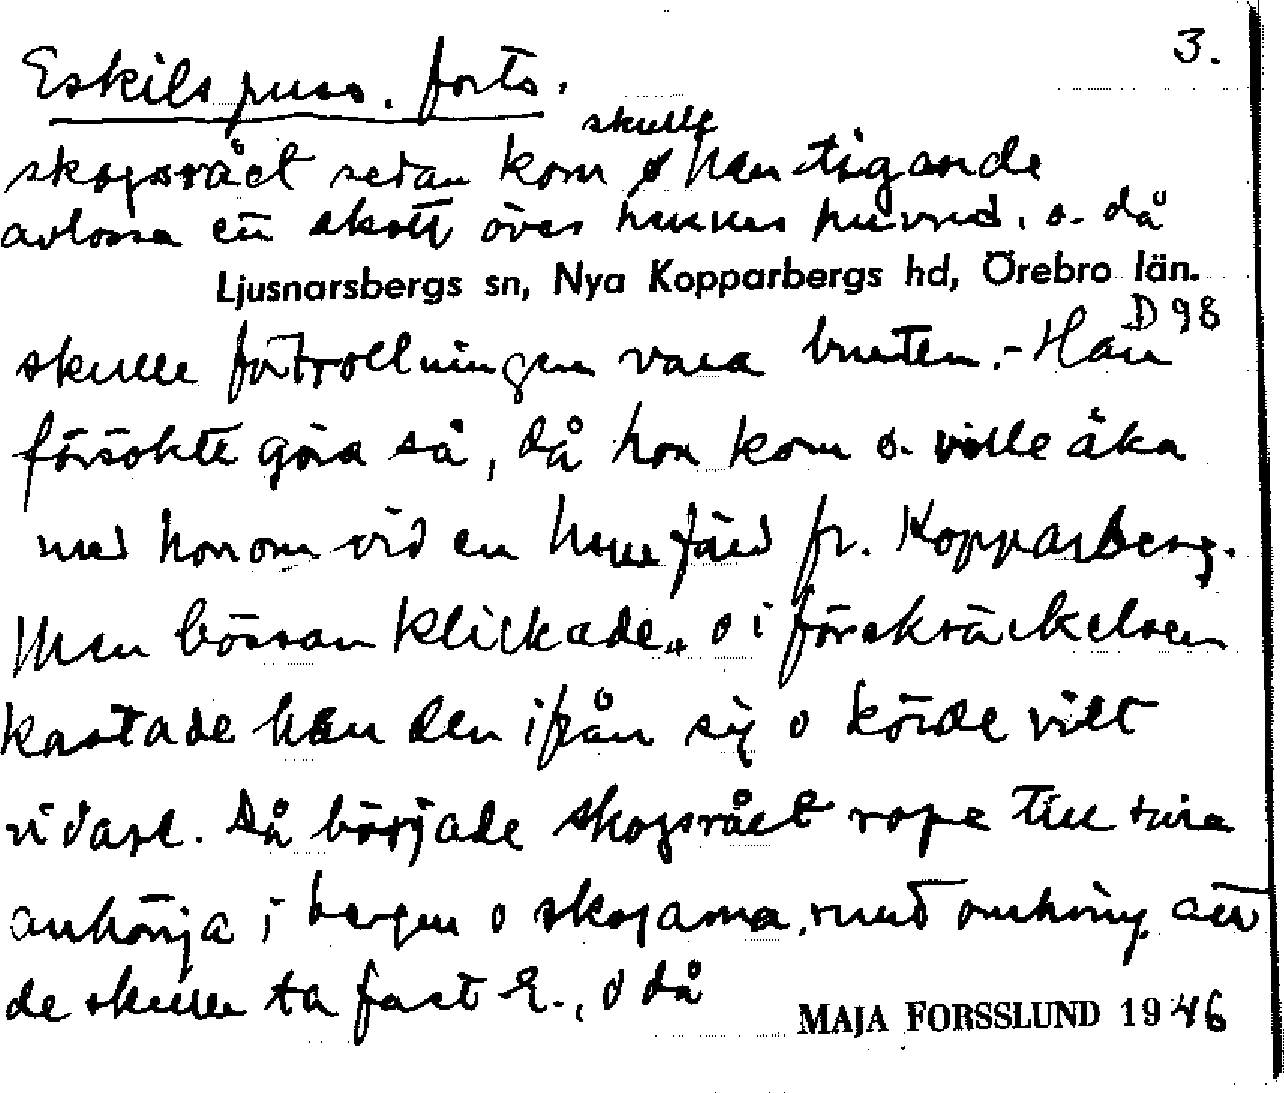 3.
Eskils puss. forts.
skulle
skogsrået sedan kom o han tigande
avlossa ett skott över hennes huvud, o. då
Ljusnarsbergs sn, Nya Kopparbergs hd, Örebro län.
D 98
skulle förtrollningen vara bruten. - Han
försökte göra så, då hon kom o. ville åka
med honom vid en hemfärd fr. Kopparberg.
Men bössan klickade, o i förskräckelsen
kastade han den ifrån sig o körde vilt
vidare. Då började skogsrået ropa till sina
anhöriga i bergen o skogarna runt omkring att
de skulle ta fast E., o då
MAJA FORSSLUND 1946